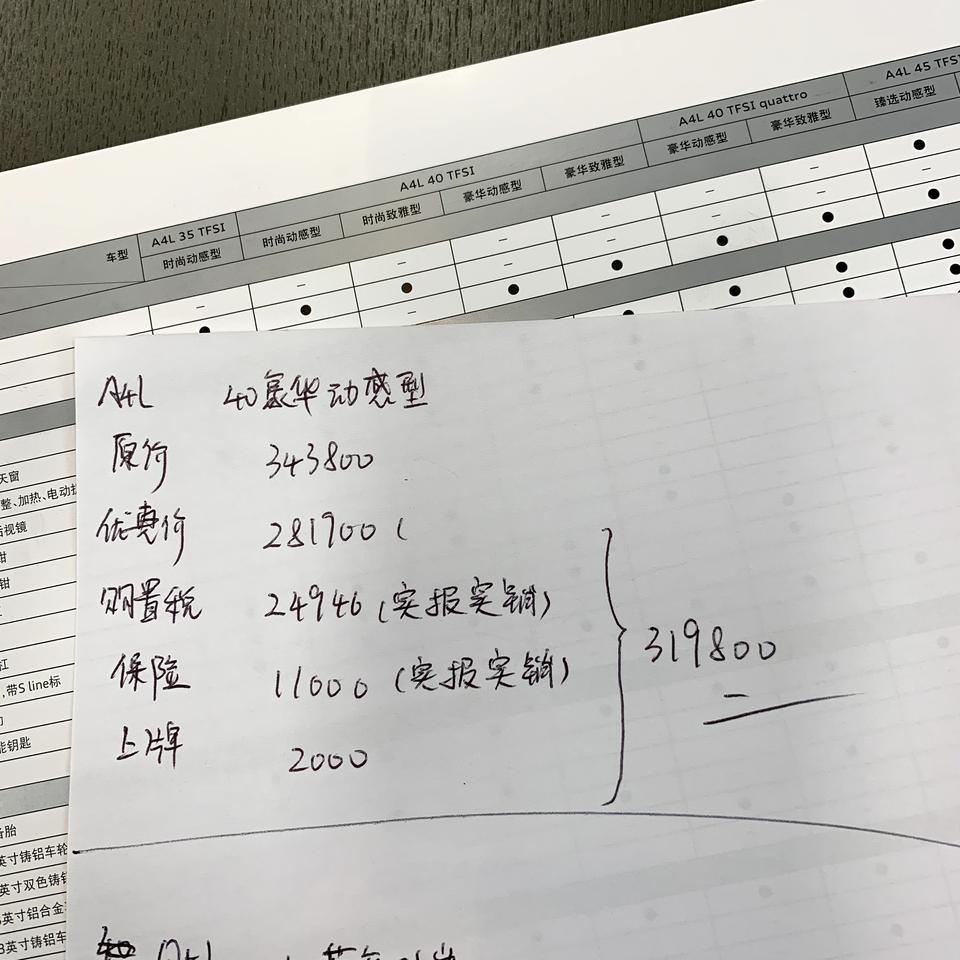 A4L 40 TFSI
A4L 40 TFSI quattro
A4L 45 TFSI
车型
A4L 35 TFSI
时尚动感型
时尚动感型
时尚致雅型
豪华动感型
豪华致雅型
豪华动感型
豪华致雅型
臻选动感型
天窗
整、加热、电动
后视镜
钳
钳
缸
,带S line标
能钥匙
备胎
英寸铸铝车轮
英寸双色铸
英寸铝合金
英寸铸铝车
A4L 40豪华动感型
原价 343800
优惠价 281900 (
购置税 24946 (实报实销)
保险 11000 (实报实销)
上牌 2000
319800
A4L